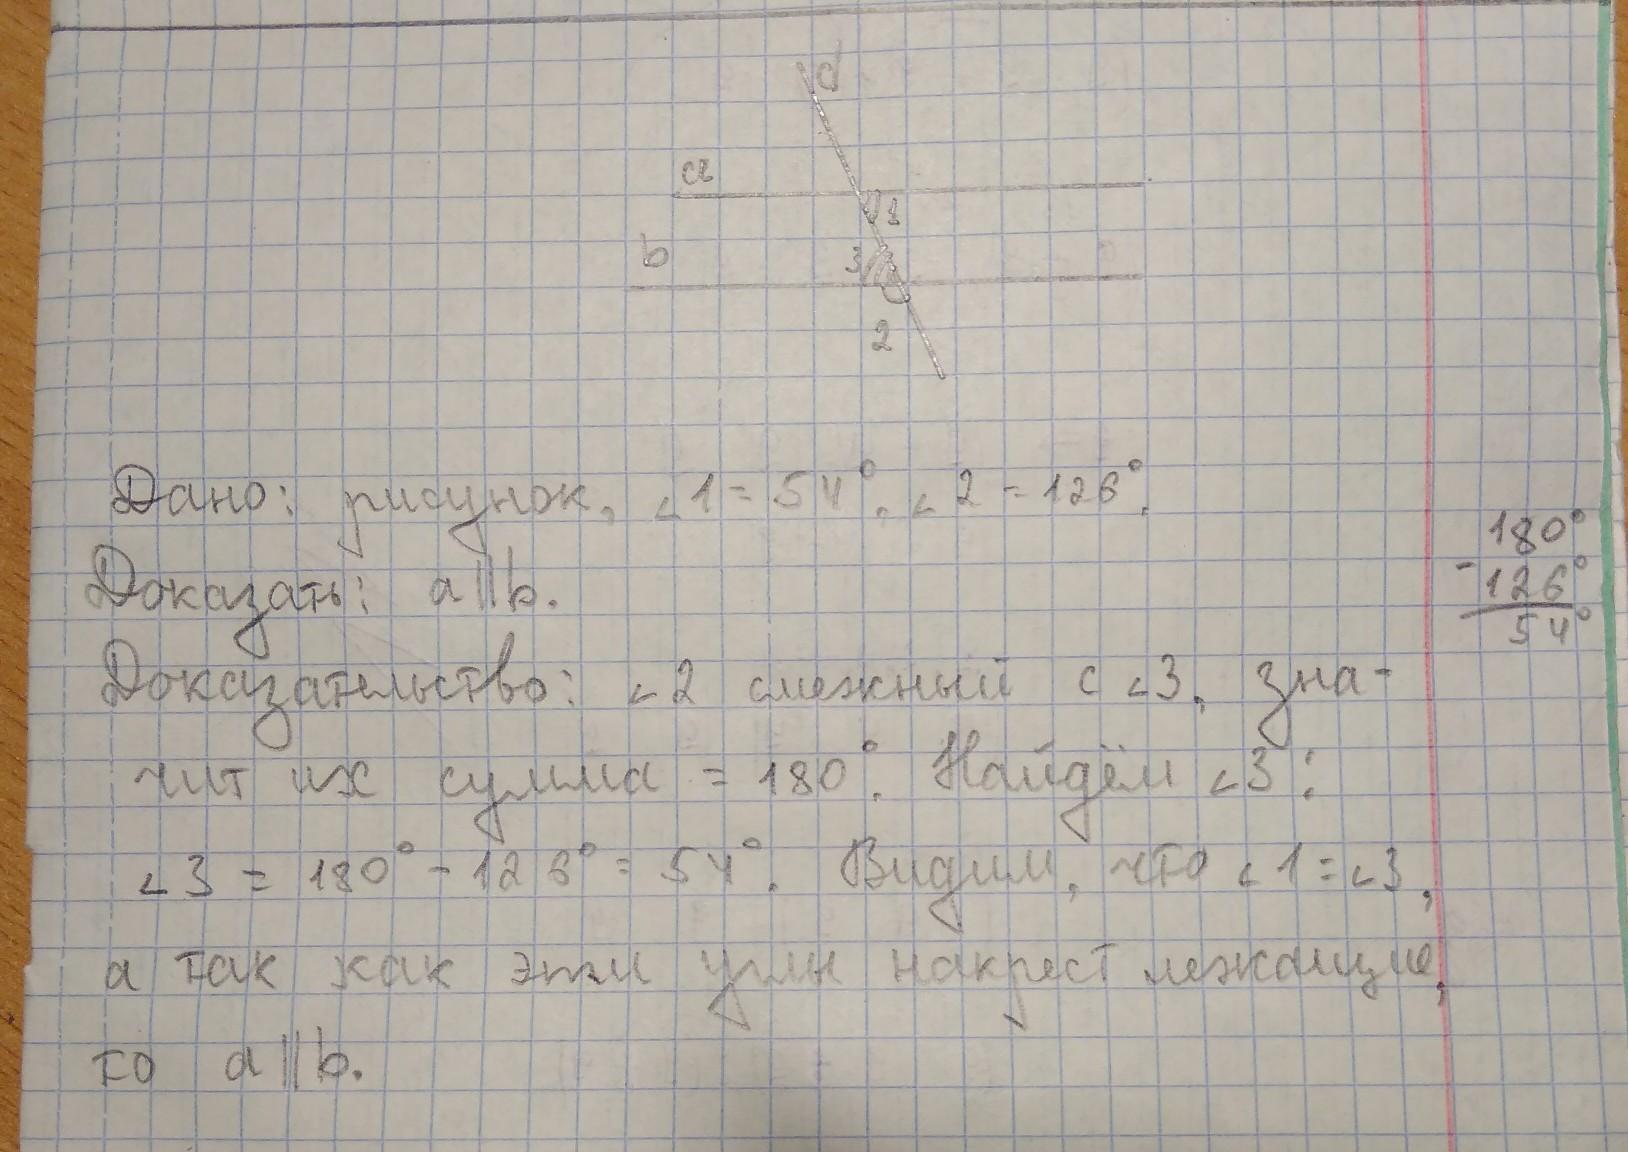 d
a
1
b
3
2
Дано: рисунок, ∠1 = 54°, ∠2 = 126°.
Доказать: a || b.
Доказательство: ∠2 смежный с ∠3, зна-
чит их сумма = 180°. Найдём ∠3:
∠3 = 180° - 126° = 54°. Видим, что ∠1 = ∠3,
а так как эти углы накрест лежащие,
то a || b.
180°
- 126°
54°